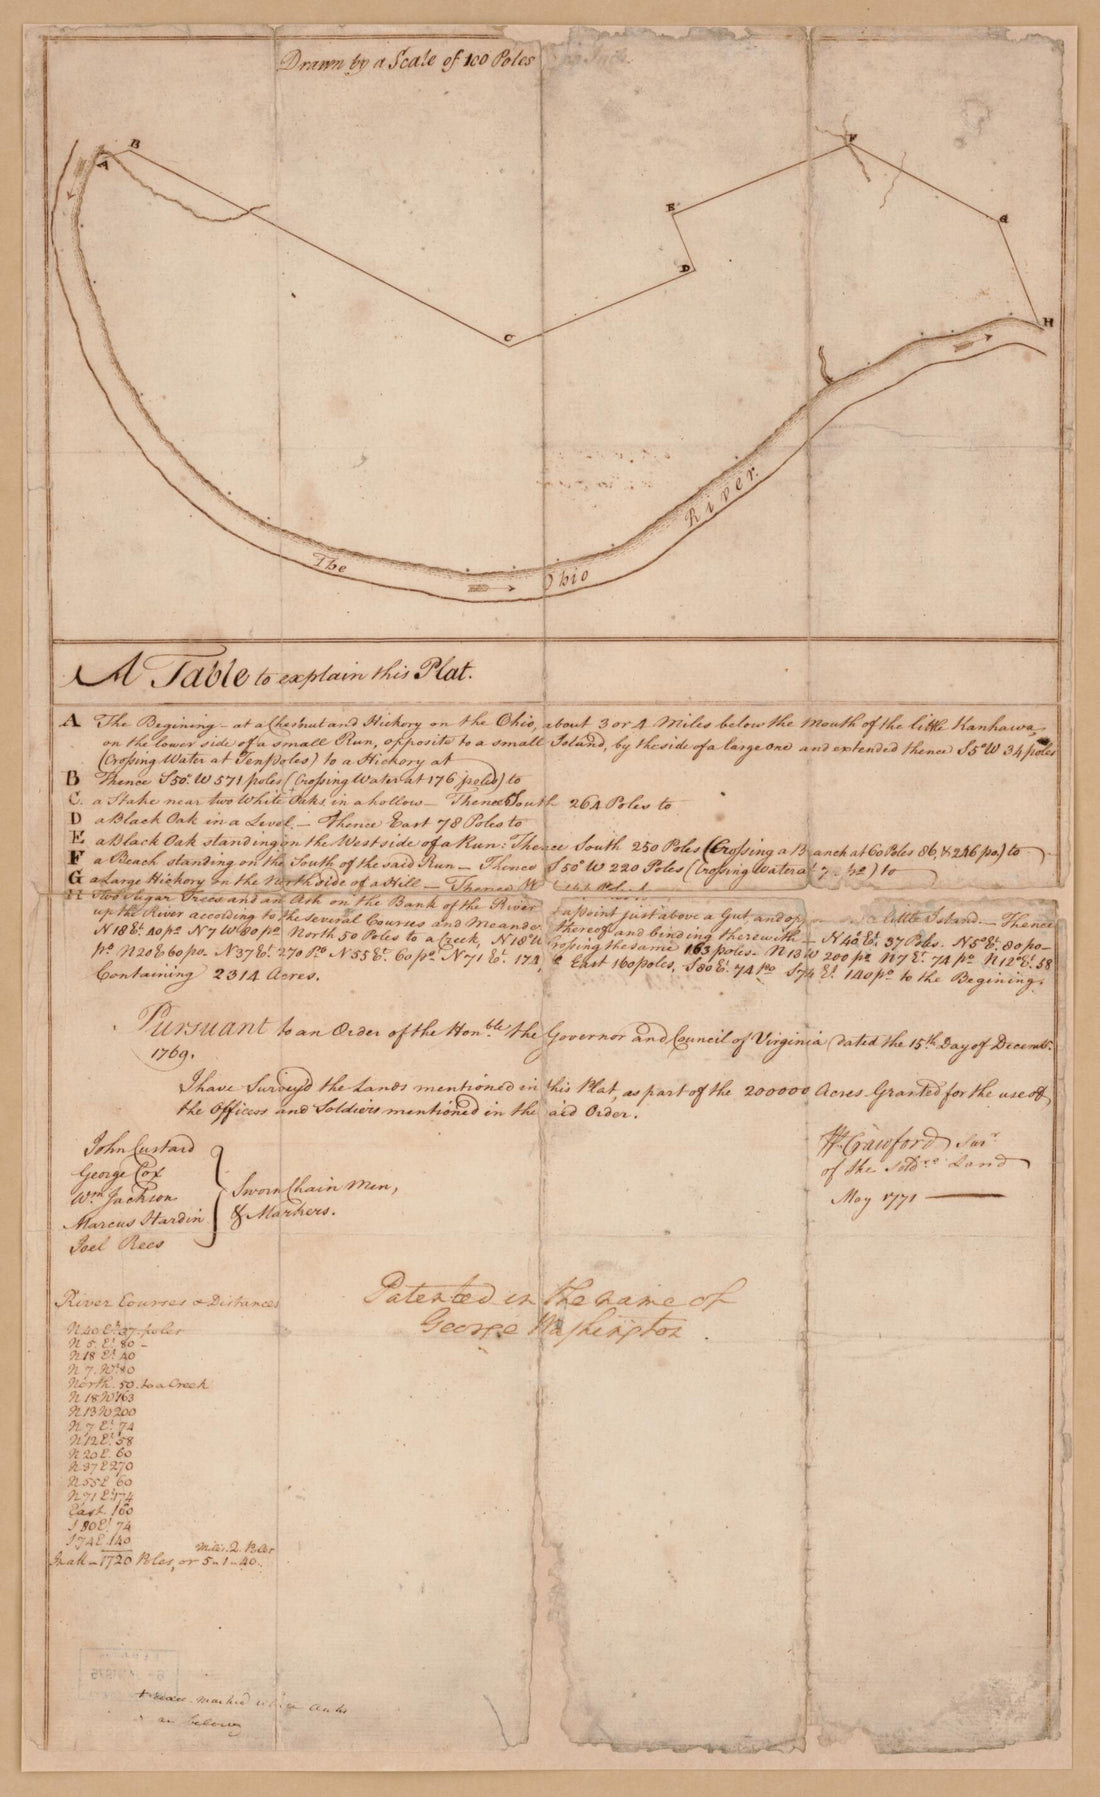 Drawn by a Scale of 100 Poles
B
A
F
E
G
D
H
C
River.
The
Ohio
A Table to explain this Plat.
A The Begining - at a Chesnut and Hickory on the Ohio, about 3 or 4 Miles below the Mouth of the little Kanhawa
on the lower side of a small Run, opposite to a small Island, by the side of a large one and extended thence S 5° W 34 poles
(Crossing Water at Ten poles) to a Hickory at
B Thence S 50° W 571 poles (Crossing Water at 176 poles) to
C. a Stake near two White Oaks in a hollow — Thence South 264 Poles to
D a Black Oak in a Level. — Thence East 78 Poles to
E a Black Oak standing on the West side of a Run: Thence South 250 Poles (Crossing a B anch at 60 Poles 86, & 246 po) to
F a Beach standing on the South of the said Run — Thence S 50° W 220 Poles (Crossing Water a 7 po) to
G a Large Hickory on the North side of a Hill — Thence
H Two Sugar Trees and an Ash on the Bank of the River a point just above a Gut, and op a little Island. — Thence
up the River according to the several Courses and Meander thereof and binding therewith — N 40° Et. 37 Poles. N 5° Et. 80 po
N 18 Et. 40 po N 7 W 80 po North 50 Poles to a Creek, N 18° W roping the same 163 poles - N 13 W 200 po N 7 Et. 74 po N 12° Et. 58
po N 20 E 60 po N 37 Et. 270 Po N 55 Et. 60 po N 71 Et. 174, East 160 poles, S 80 Et. 74 po S 74 Et. 140 po to the Begining.
Containing 2314 Acres.
Pursuant to an Order of the Honble the Governor and Council of Virginia dated the 15th Day of Decemr.
1769.
I have Survey'd the Lands mentioned in his Plat, as part of the 200000 Acres Granted for the use of
the Officers and Soldiers mentioned in the aid Order.
John Custard
George Cox
Wm Jackson
Marcus Hardin
Joel Rees
Sworn Chain Men,
& Markers.
W Crawford Surr
of the Land
May 1771
Patented in the name of
George Washington.
River Courses & Distances
N 40 Et. 37 poles
N 5. Et. 80 -
N 18 Et. 40
N 7. W 80
North. 50. to a Creek
N 18 W 163
N 13 W 200
N 7 Et. 74
N 12 Et. 58
N 20 E. 60
N 37 E 270
N 55 E 60
N 71 Et. 174
East. 160
S 80 Et. 74
S 74 E 140
Miles. Q. Poles
In all - 1720 Poles, or 5 - 1 - 40.
marked